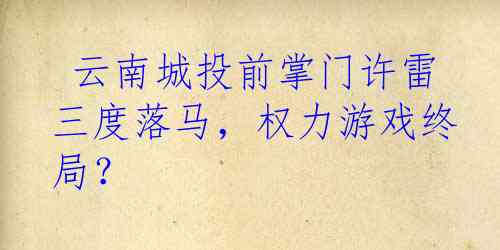 云南城投前掌门许雷
三度落马，权力游戏终
局？